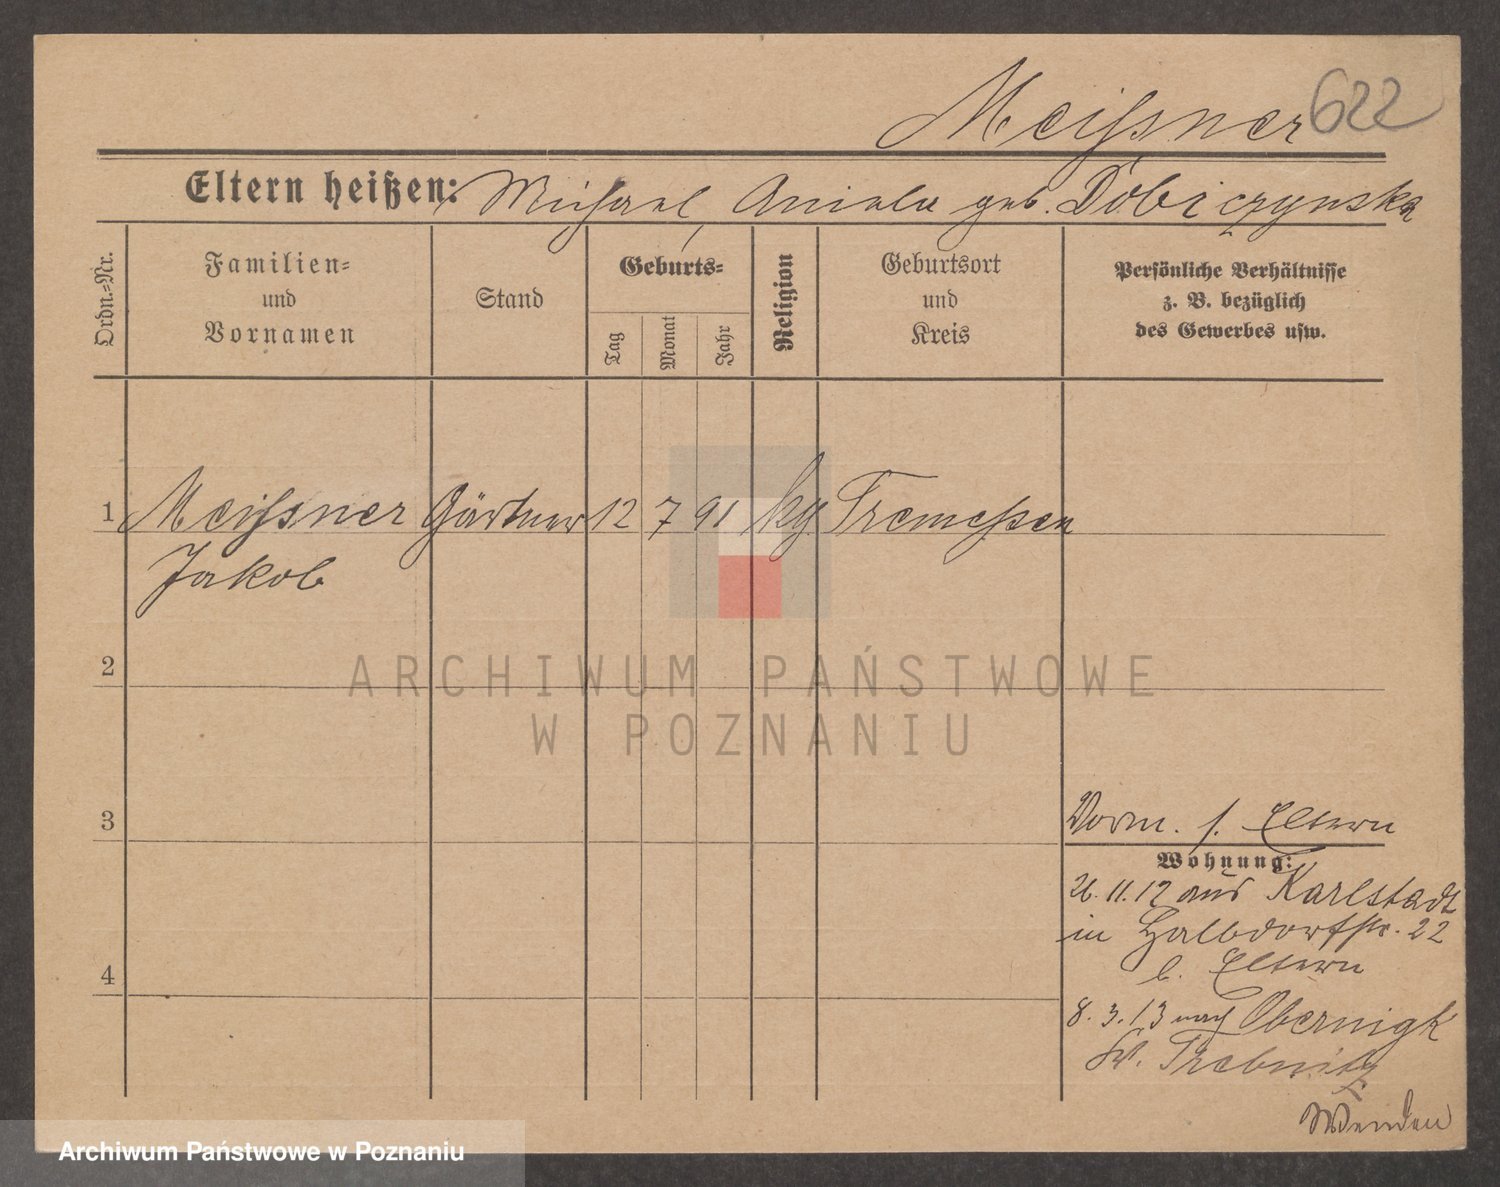 Meissner 622
Eltern heißen: Michael, Aniela geb. Dobiczynska
Ordn.-Nr.
Familien-
und
Vornamen
Stand
Geburts-
Tag
Monat
Jahr
Religion
Geburtsort
und
Kreis
Persönliche Verhältnisse
z. B. bezüglich
des Gewerbes usw.
1 Meissner Gärtner 12 7 91 kg. Tremessen
Jakob
2
3
4
Vorm. s. Eltern
Wohnung:
26.11.12 aus Karlstadt
in Halbdorfstr. 22
b. Eltern
8.3.13 nach Obernigk
Kr. Trebnitz
Wenden
ARCHIWUM PAŃSTWOWE
W POZNANIU
Archiwum Państwowe w Poznaniu